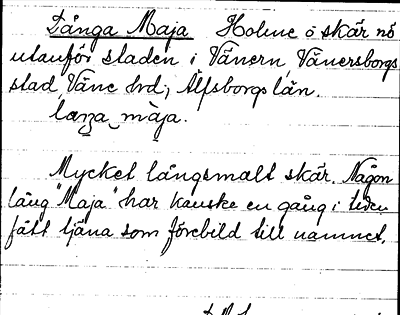 Långa Maja Holme o skär nö
utanför staden i Vänern, Vänersborgs
stad, Väne hrd, Älfsborgs län.
laŋa maja.
Mycket långsmalt skär. Någon
lång "Maja" har kanske en gång i tiden
fått tjäna som förebild till namnet.